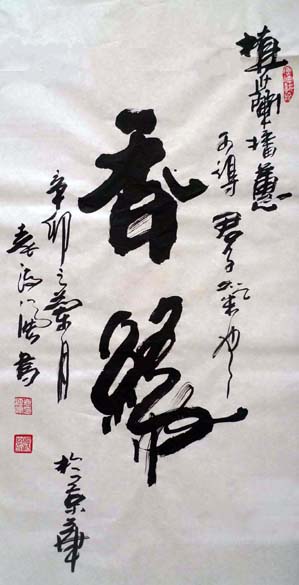 植蘭播蕙
可得君子氣也
香緣
辛卯之蘭月
書
於京華